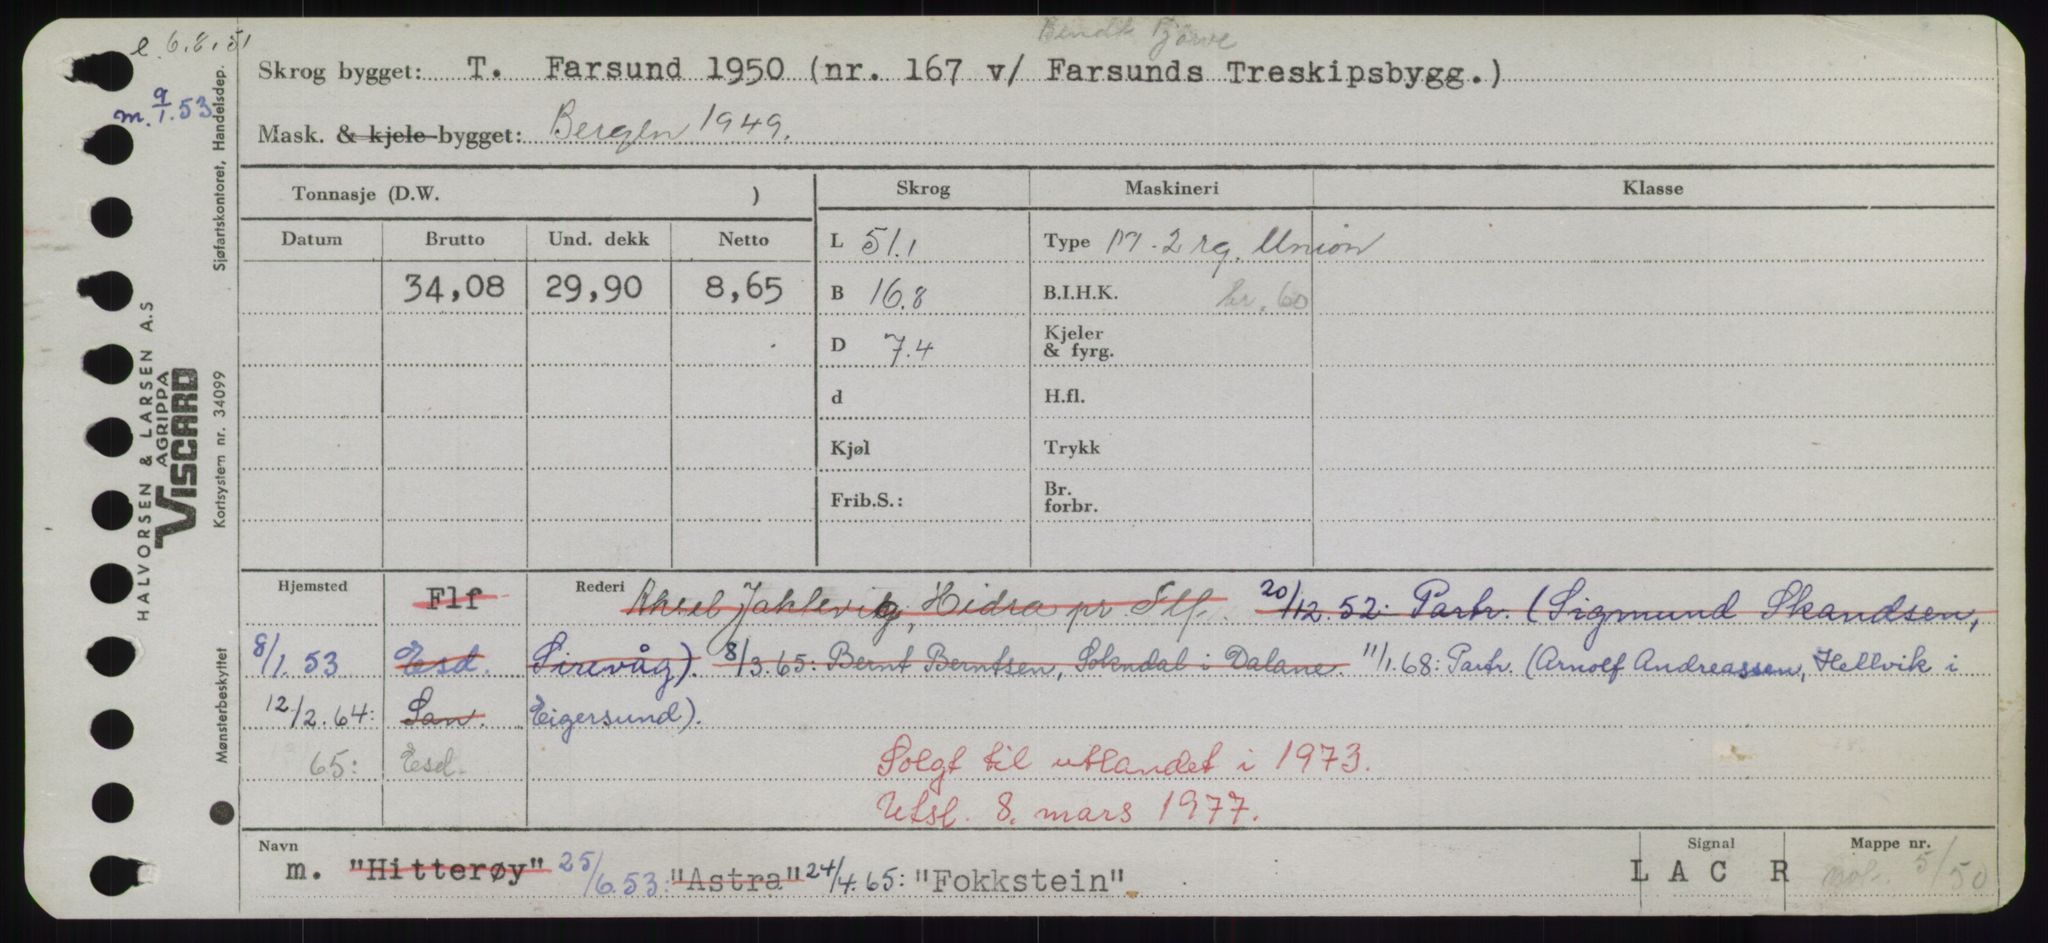 e 6.8.51
m. 9/1.53
Bendik Tjörve
Skrog bygget: T. Farsund 1950 (nr. 167 v/ Farsunds Treskipsbygg.)
Mask. & kjele bygget: Bergen 1949.
Tonnasje (D.W. )
Skrog Maskineri Klasse
Datum Brutto Und. dekk Netto
L 51,1 Type M. 2 rg. Union
34,08 29,90 8,65
B 16.8 B.I.H.K. br. 60
D 7.4 Kjeler & fyrg.
d H.fl.
Kjøl Trykk
Frib.S.: Br. forbr.
Hjemsted Flf Rederi Aksel Jahlevig, Hidra pr Flf. 20/12.52: Partr. (Sigmund Skandsen,
8/1.53 Esd. Sirevåg). 8/3.65: Bernt Berntsen, Sokndal i Dalane. 11/1.68: Partr. (Arnolf Andreassen, Hellvik i
12/2.64: San. Eigersund).
65: Esd. Solgt til utlandet i 1973.
Utsl. 8. mars 1977.
Navn m. "Hitterøy" 25/6.53: "Astra" 24/4.65: "Fokkstein"
Signal L A C R
Mappe nr. 5/50
Sjøfartskontoret, Handelsdep.
HALVORSEN & LARSEN A.S
AGRIPPA
VISCARD
Kortsystem nr. 34099
Mønsterbeskyttet